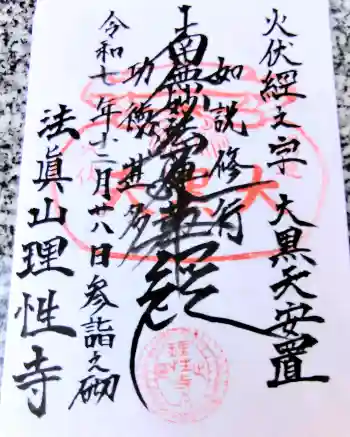 火伏經文字 大黒天安置
如説修行
南無妙法蓮華經
功德
令和七年十二月廿八日参詣之砌
法眞山理性寺
大黒天
理性寺